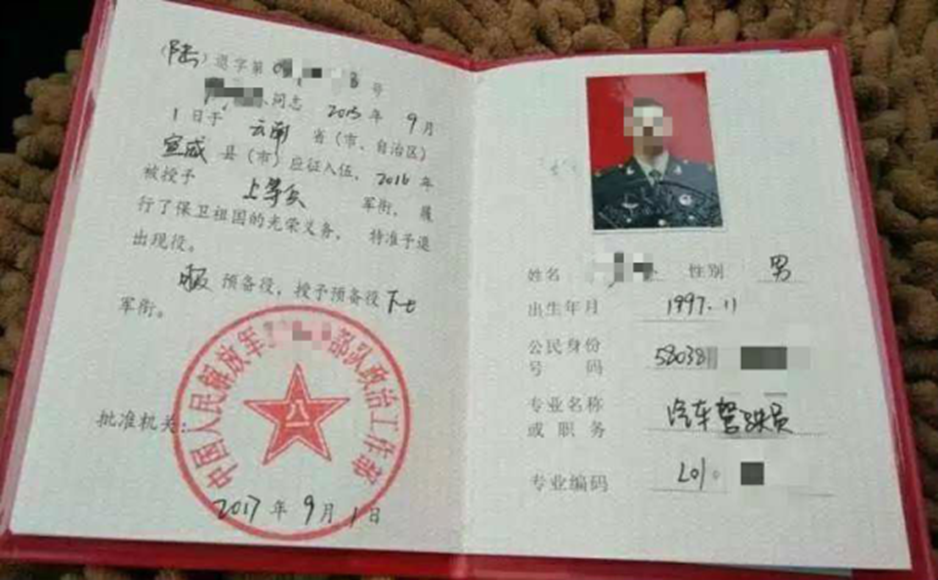 (陆)退字第 号
同志 2015年9月
1日于 云南 省(市、自治区)
宣威 县(市)应征入伍,2016年
被授予 上等兵 军衔,履
行了保卫祖国的光荣义务,特准予退
出现役。
服 预备役,授予预备役下士
军衔。
中国人民解放军 部队政治工作部
八一
批准机关:
2017年9月1日
姓名 性别 男
出生年月 1997.11
公民身份
号码 58038
专业名称 汽车驾驶员
或职务
专业编码 L01